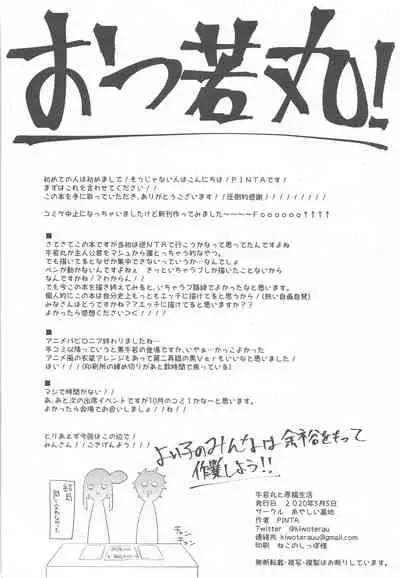 おつ若丸!
初めての人は初めまして!そうじゃない人はこんにちは!PINTAです!
まずはこれを言わせてください!!
この本を手に取っていただき、ありがとうございます!!圧倒的感謝!!!!!!!!!
コミケ中止になっちゃいましたけど新刊作ってみました~~~~Foooooo↑↑↑↑
■
さてさてこの本ですが当初は逆NTRで行こうかなって思ってたんですよね
牛若丸が主人公君をマシュから寝とっちゃう的なやつ。
でも描いてるとなぜか集中できないっていうか…なんでしょ
ペンが動かないんですよねぇ きっといちゃラブしか描いたことないから
なんですかね!?わからん!!
でも今この本を描き終えてみると、いちゃラブ路線でよかったなと思います。
個人的にこの本は自分史上もっともエッチに描けてると思うから!(熱い自画自賛)
みなさんはどうですかね??エッチに描けてると思いますか??
よかったら感想くださいロく!!!!
■
アニメバビロニア終わりましたね…
8コミ以降っていうと黒牛若の登場ですが、いやぁ…かっこよかった
アニメ風の衣装アレンジもあって第二再臨の黒Verもいいなと思いました!
はい!!!(印刷所の締め切りがあと数時間で焦っている)
■
マジで時間がない!!
あ、あと次の出席イベントですが10月のコミ1かなーと思います。
よかったら会場でお会いしましょ!!ね!!
とりあえず今回はこの辺で!
みんさん!!ごきげんよう!!!
よい子のみんなは余裕をもって
作業しよう!!
チャンチャン
牛若丸と原稿生活
発行日 2020年5月5日
サークル あやしい墓地
作者 PINTA
Twitter @kiwoterau
連絡先 kiwoterauu@gmail.com
印刷 ねこのしっぽ様
無断転載・複写・複製はお断りしています。